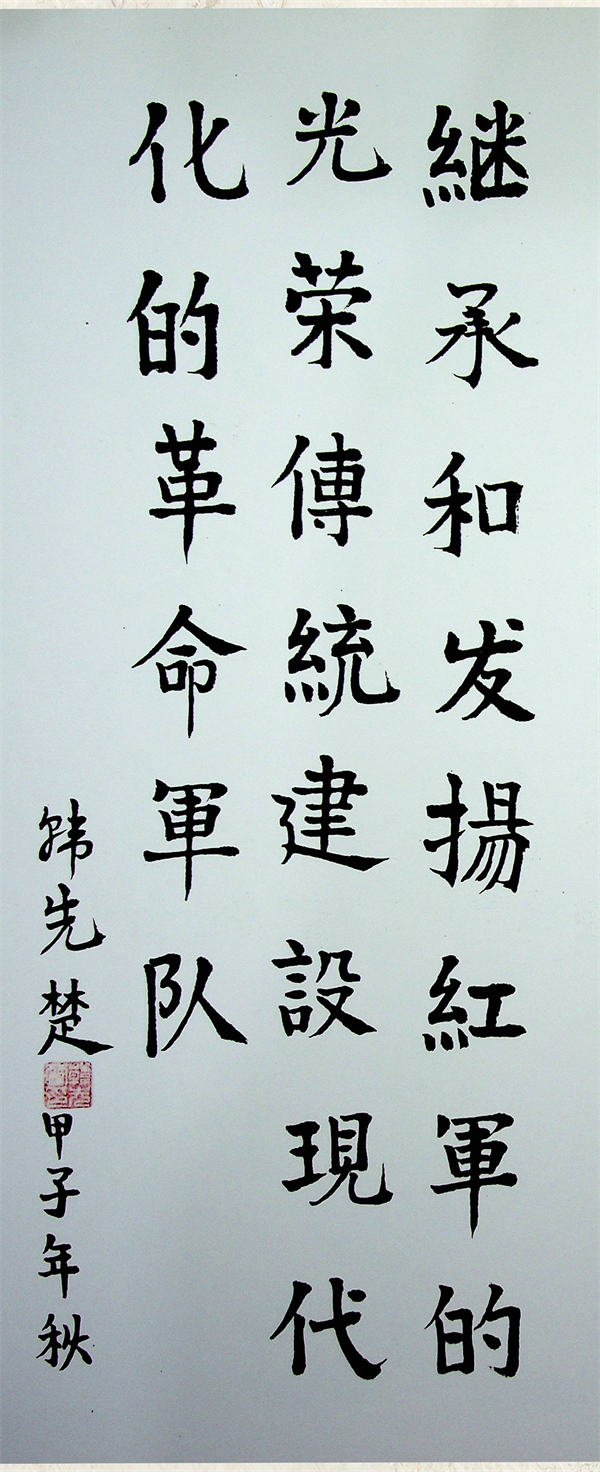 継承和发揚紅軍的
光荣傳統建設現代
化的革命軍队
韩先楚
甲子年秋